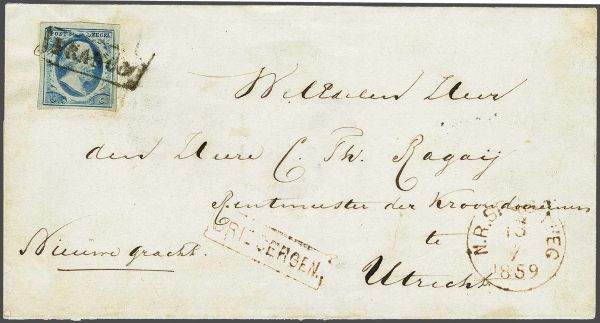 POST ZEGEL
FRANCO
WelEdelen Heer
den Heere C. Th. Ragaij
Rentmeester der Kroondomeinen
te
Utrecht
Nieuwe gracht.
RILBERGEN.
N.R.SP
EG
1859